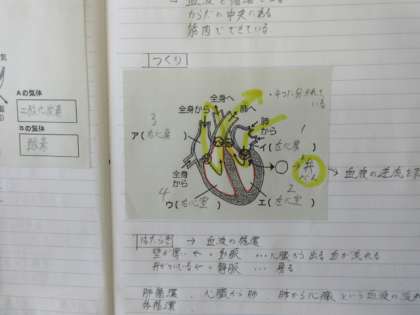 からだの中央にある
筋肉でできている
つくり
・4つに分かれて
いる
全身へ
全身から
肺へ
肺から
3
ア(右心房)
1
イ(左心房)
弁
べん
→ 血液の逆流を
全身から
4
ウ(右心室)
2
エ(左心室)
Aの気体
二酸化炭素
Bの気体
酸素
はたらき → 血液の循環
動脈 …心臓から出る血が流れる
静脈 … 戻る
肺循環 心臓から肺 肺から心臓 という血液の流れ
体循環